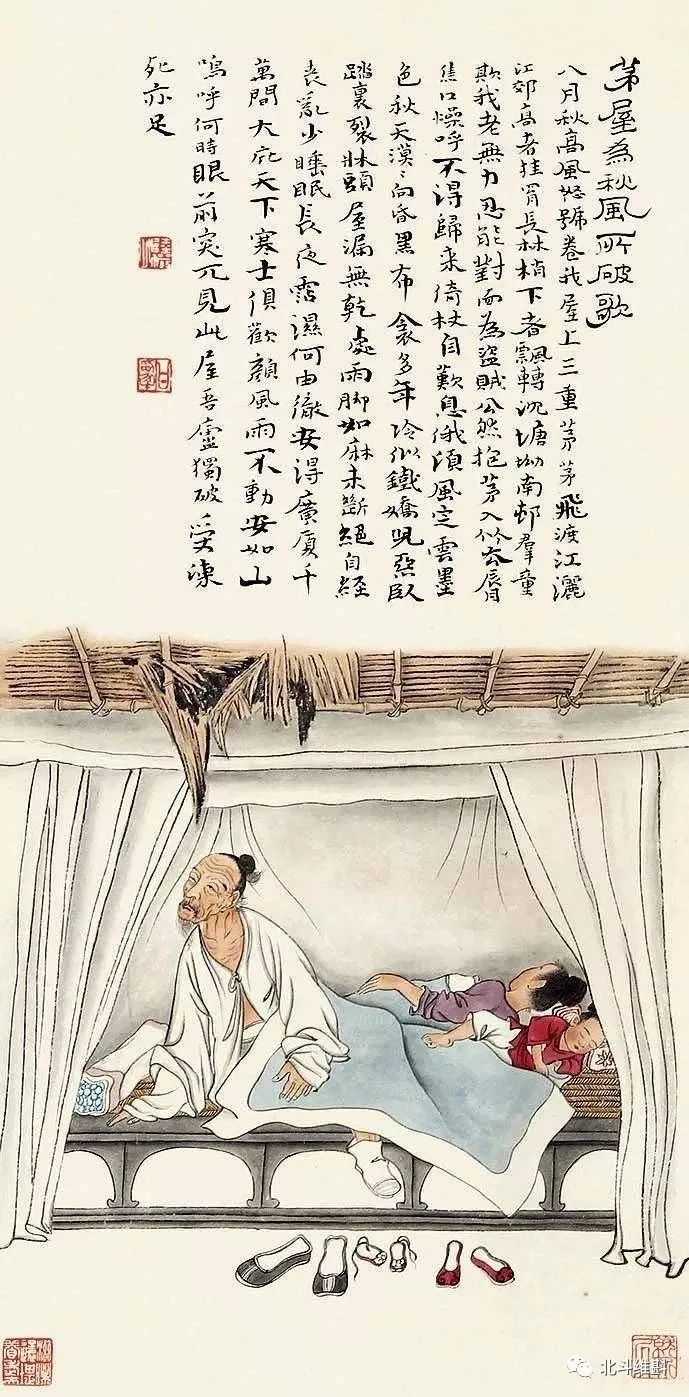 茅屋為秋風所破歌
八月秋高風怒號卷我屋上三重茅茅飛渡江灑
江郊高者挂罥長林梢下者飄轉沈塘坳南邨羣童
欺我老無力忍能對面為盜賊公然抱茅入竹去脣
焦口燥呼不得歸來倚杖自歎息俄頃風定雲墨
色秋天漠々向昏黑布衾多年冷似鐵嬌兒惡臥
踏裏裂牀頭屋漏無乾處雨脚如麻未斷絕自經
喪亂少睡眠長夜霑濕何由徹安得廣廈千
萬間大庇天下寒士俱歡顏風雨不動安如山
嗚呼何時眼前突兀見此屋吾廬獨破受凍
死亦足
北斗维斟